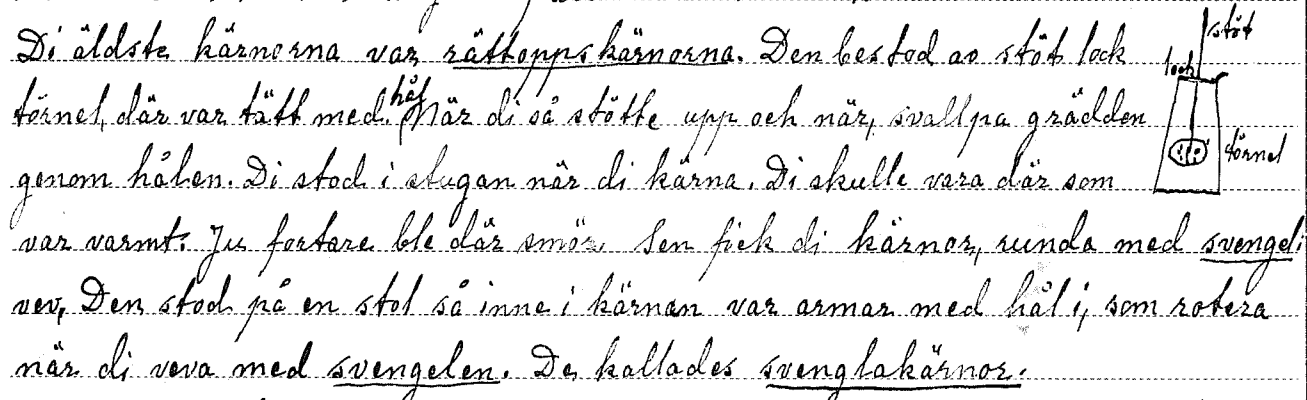 Di äldste kärnorna var rättoppskärnorna. Den bestod av stöt lock
törnel, där var tätt med hål. När di så stötte upp och när, svallpa grädden
genom hålen. Di stod i stugan när di kärna. Di skulle vara där som
var varmt. Ju fortare ble där smör. Sen fick di kärnor, runda med svengel i
vev, Den stod på en stol så inne i kärnan var armar med hål i, som rotera
när di veva med svengelen. De kallades svenglakärnor.
stöt
lock
törnel